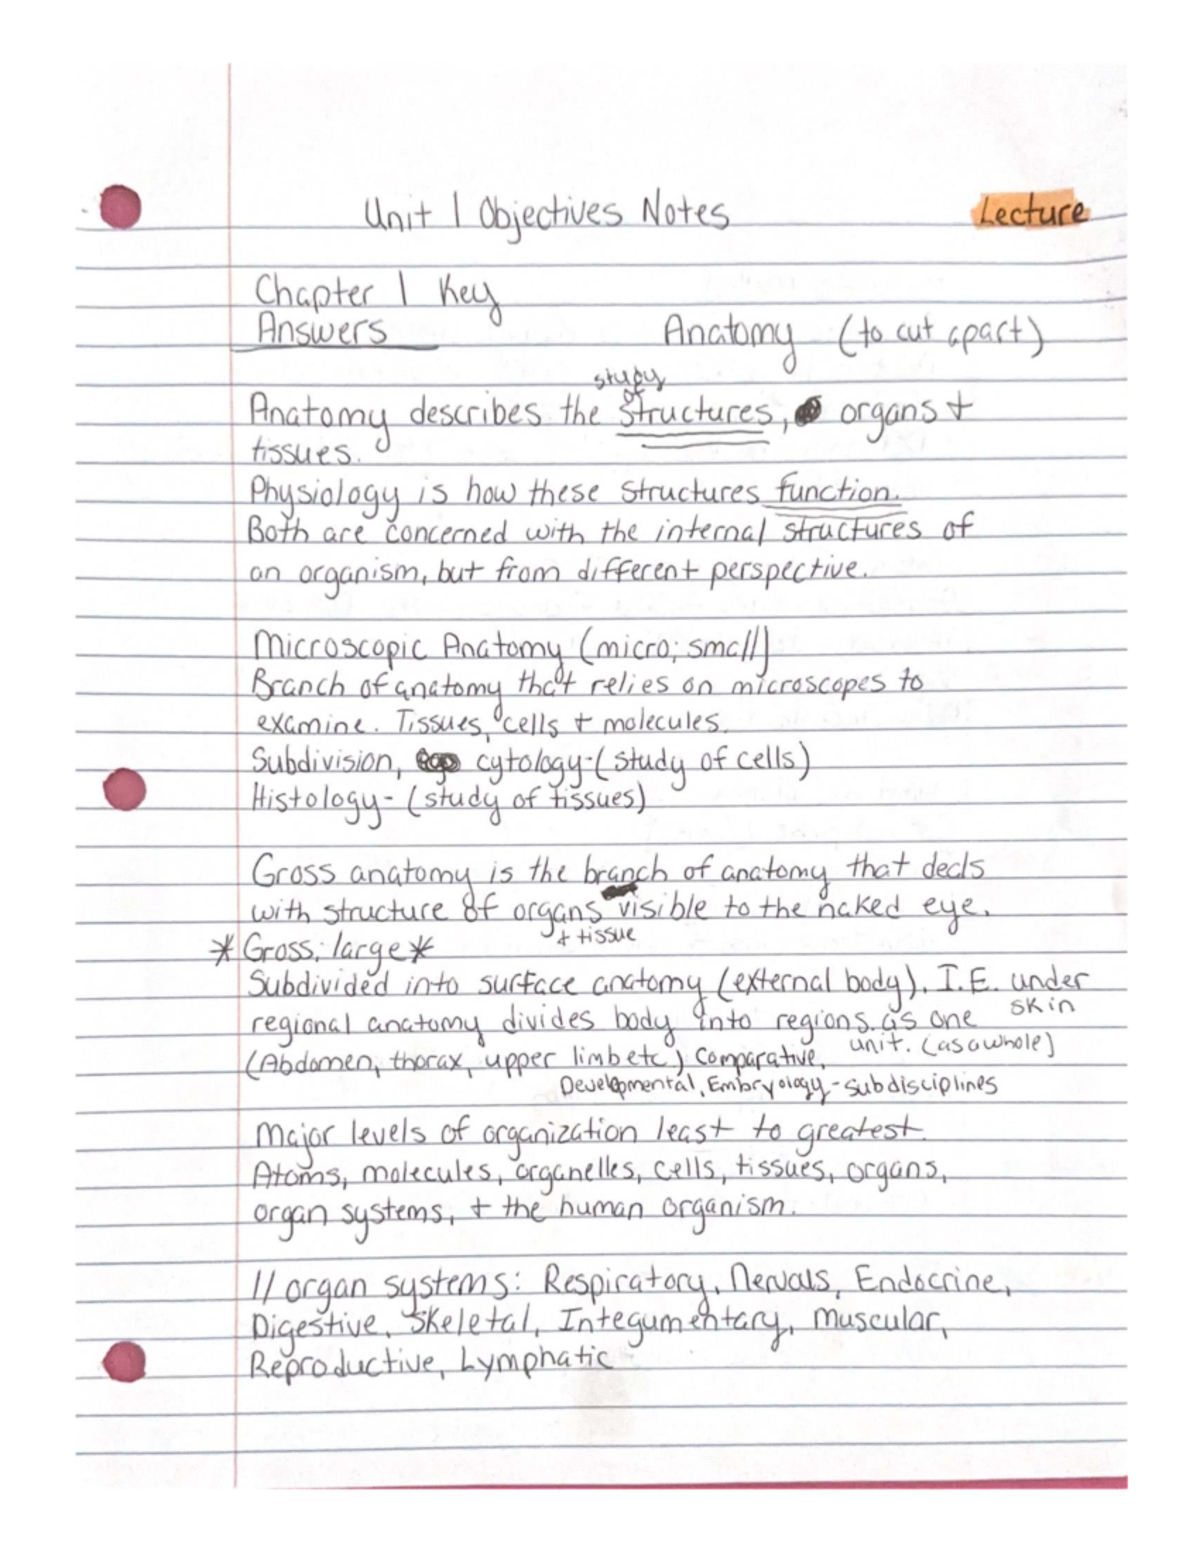 Unit 1 Objectives Notes Lecture
Chapter 1 Key
Answers Anatomy (to cut apart)
study
of
Anatomy describes the structures, organs +
tissues.
Physiology is how these structures function.
Both are concerned with the internal structures of
an organism, but from different perspective.
Microscopic Anatomy (micro; small)
Branch of anatomy that relies on microscopes to
examine. Tissues, cells + molecules.
Subdivision, cytology-(study of cells)
Histology-(study of tissues)
Gross anatomy is the branch of anatomy that deals
with structure of organs visible to the naked eye.
+ tissue
*Gross; large*
Subdivided into surface anatomy (external body). I.E. under
skin
regional anatomy divides body into regions as one
unit. (as a whole)
(Abdomen, thorax, upper limb etc) Comparative,
Developmental, Embryology-subdisciplines
Major levels of organization least to greatest.
Atoms, molecules, organelles, cells, tissues, organs,
organ systems, + the human organism.
11 organ systems: Respiratory, Nervals, Endocrine,
Digestive, Skeletal, Integumentary, Muscular,
Reproductive, Lymphatic